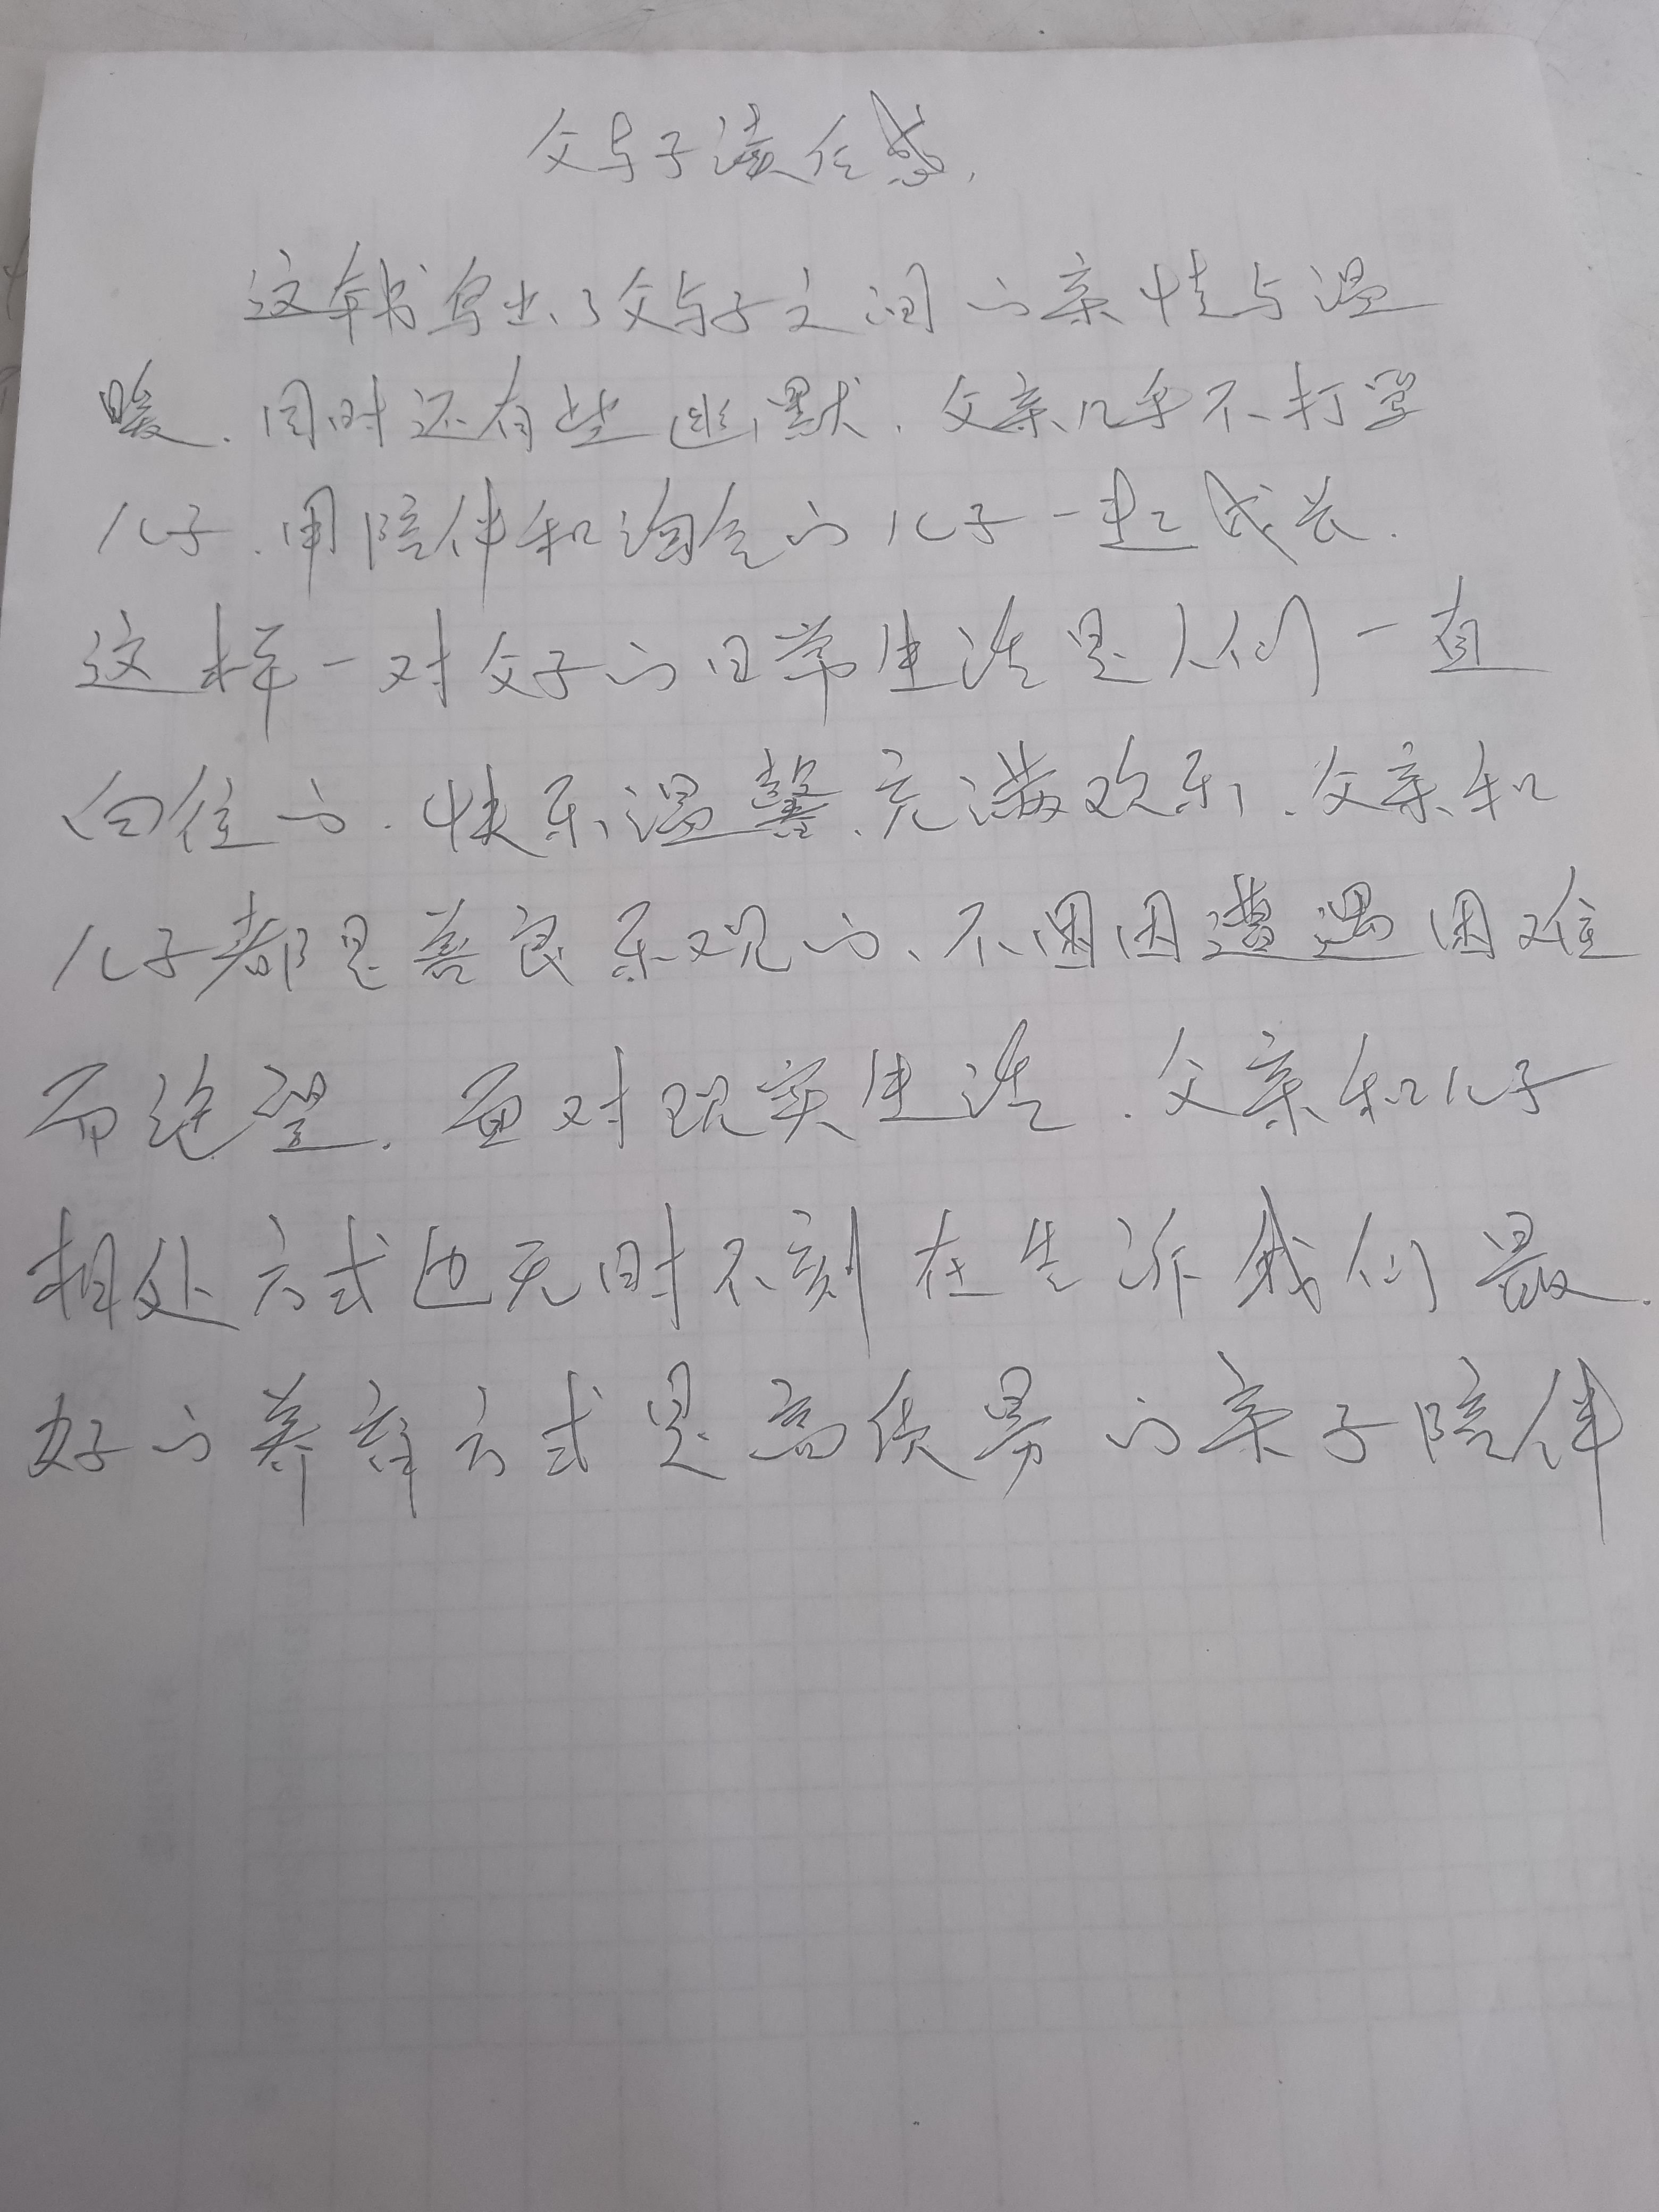 父与子读后感.
这本书写出了父与子之间的亲情与温
暖.同时还有些幽默.父亲几乎不打骂
儿子.用陪伴和淘气的儿子一起成长.
这样一对父子的日常生活是人们一直
向往的.快乐温馨、充满欢乐.父亲和
儿子都是善良乐观的、不因遭遇困难
而绝望.面对现实生活.父亲和儿子
相处方式也无时不刻在告诉我们最
好的养育方式是高质量的亲子陪伴